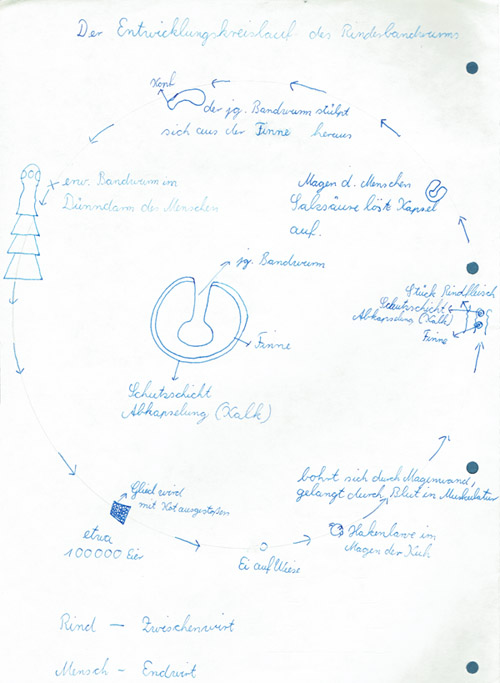 Der Entwicklungskreislauf des Rinderbandwurms
Kopf
der jg. Bandwurm stülpt
sich aus der Finne heraus
erw. Bandwurm im
Dünndarm des Menschen
Magen d. Menschen
Salzsäure löst Kapsel
auf.
jg. Bandwurm
Finne
Schutzschicht
Abkapselung (Kalk)
Stück Rindfleisch
Schutzschicht
Abkapselung (Kalk)
Finne
bohrt sich durch Magenwand,
gelangt durch Blut in Muskulatur
Glied wird
mit Kot ausgestoßen
etwa
100000 Eier
Ei auf Wiese
Hakenlarve im
Magen der Kuh
Rind — Zwischenwirt
Mensch — Endwirt